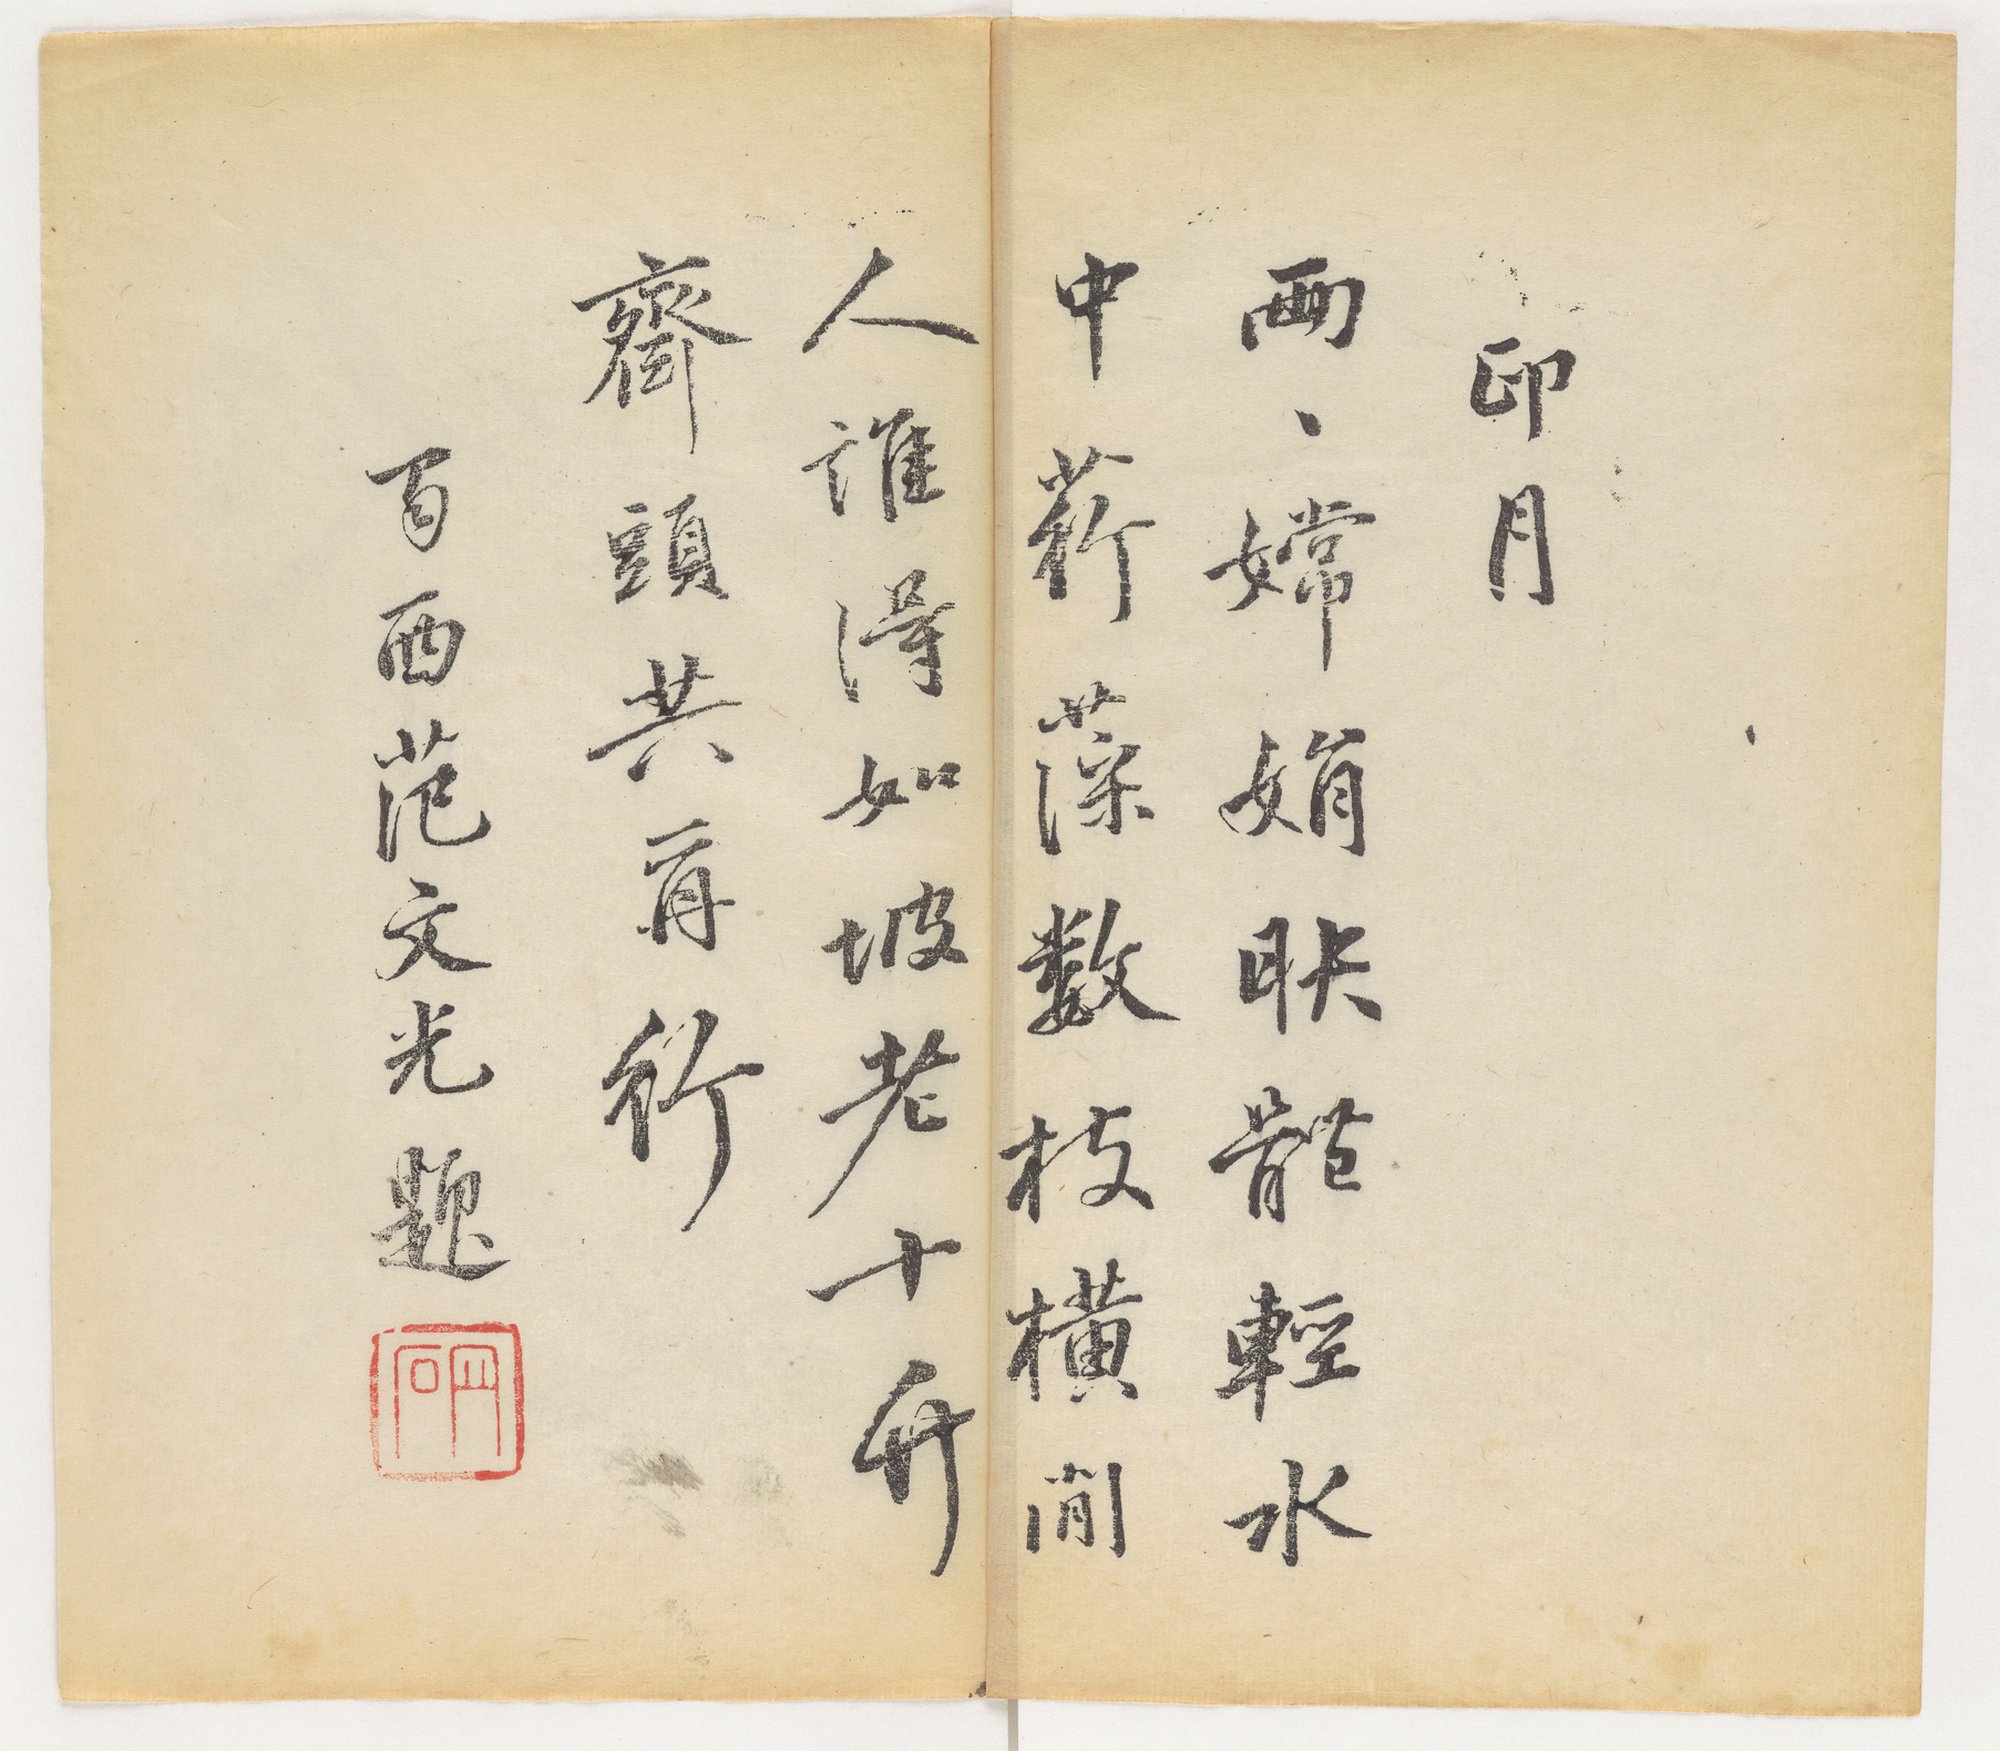 印月
兩、嫦娟映體輕水
中荇藻數枝橫閒
人誰得如坡老十竹
齋頭共再行
百西范文光題